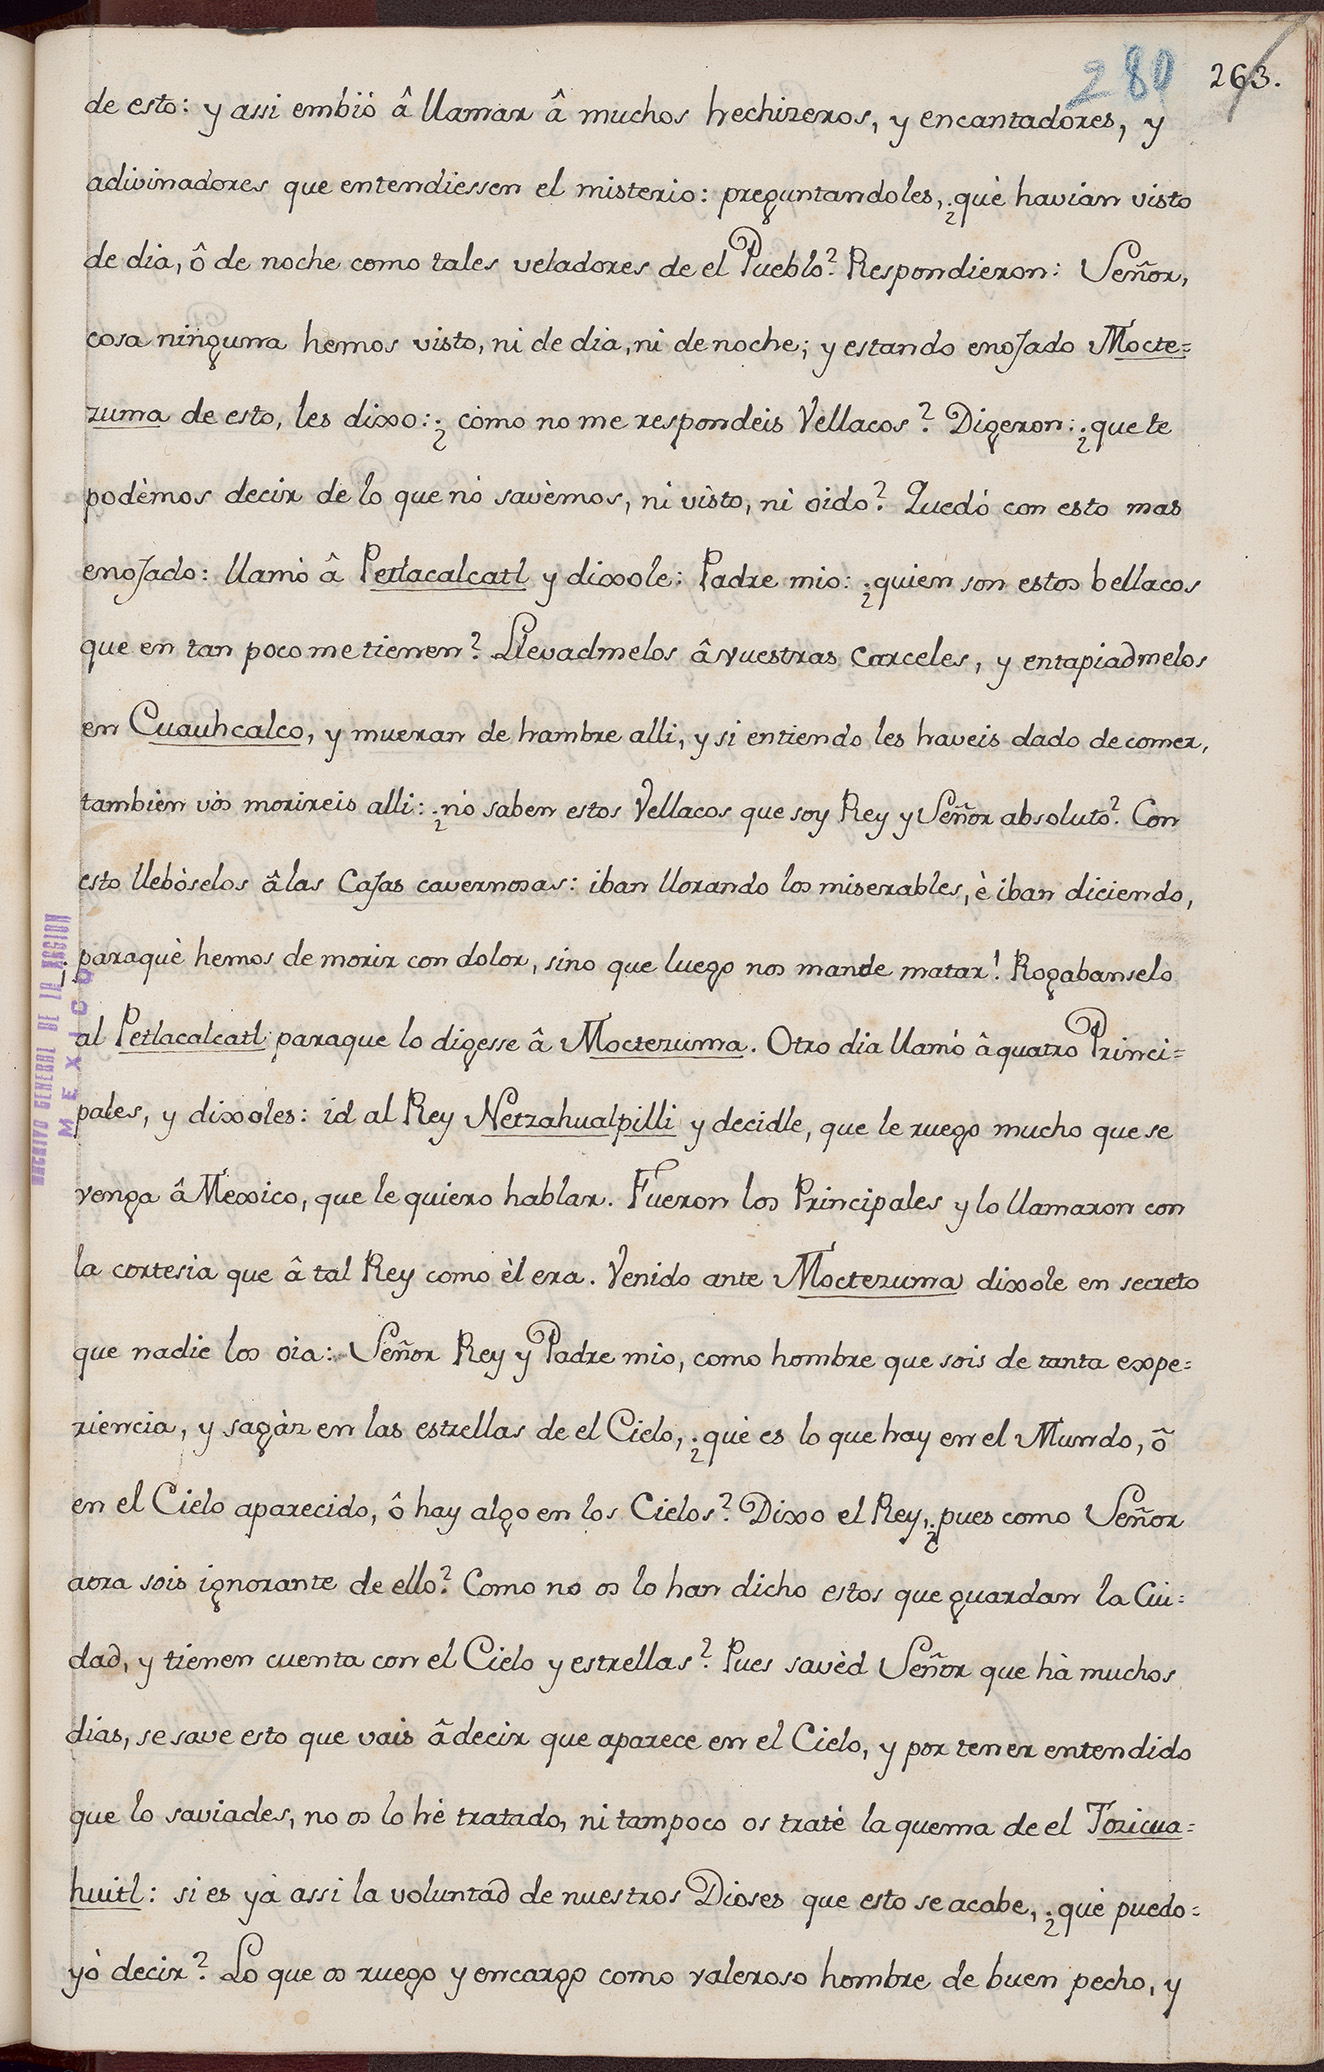 280 263.
de esto: y assi embió â llamar â muchos hechizeros, y encantadores, y
adivinadores que entendiessen el misterio: preguntandoles, ¿què havian visto
de dia, ô de noche como tales veladores de el Pueblo? Respondieron: Señor,
cosa ninguna hemos visto, ni de dia, ni de noche; y estando enojado Mocte=
zuma de esto, les dixo: ¿còmo no me respondeis Vellacos? Digeron: ¿que te
podèmos decir de lo que nó savèmos, ni vìsto, nì oido? Quedó con esto mas
enojado: llamò â Petlacalcatl y dixole: Padre mio: ¿quien son estos bellacos
que en tan poco me tienen? Llevadmelos â vuestras Carceles, y entapiadmelos
en Cuauhcalco, y mueran de hambre alli, y si entiendo les haveis dado de comer,
tambien vòs morireis alli: ¿nó saben estos Vellacos que soy Rey y Señor absoluto? Con
esto llebòselos â las Cajas cavernosas: iban llorando los miserables, è iban diciendo,
¡paraquè hemos de morir con dolor, sino que luego nos mande matar! Rogabanselo
al Petlacalcatl paraque lo digesse â Moctezuma. Otro dia llamó â quatro Princi=
pales, y dixoles: id al Rey Netzahualpilli y decidle, que le ruego mucho que se
venga â Mexico, que le quiero hablar. Fueron los Principales y lo llamaron con
la cortesia que â tal Rey como èl era. Venido ante Moctezuma dixole en secreto
que nadie los oia: Señor Rey y Padre mio, como hombre que sois de tanta expe=
riencia, y sagàz en las estrellas de el Cielo, ¿què es lo que hay en el Mundo, ô
en el Cielo aparecido, ô hay algo en los Cielos? Dixo el Rey, ¿pues como Señor
aora sois ignorante de ello? Como no os lo han dicho estos que guardan la Ciu=
dad, y tienen cuenta con el Cielo y estrellas? Pues savèd Señor que hà muchos
dias, se save esto que vais â decir que aparece en el Cielo, y por tener entendido
que lo saviades, no os lo hè tratado, ni tampoco os tratè la quema de el Tozicua=
huitl: si es yà assi la voluntad de nuestros Dioses que esto se acabe, ¿què puedo=
yò decir? Lo que os ruego y encargo como valeroso hombre de buen pecho, y
ARCHIVO GENERAL DE LA NACION
MEXICO